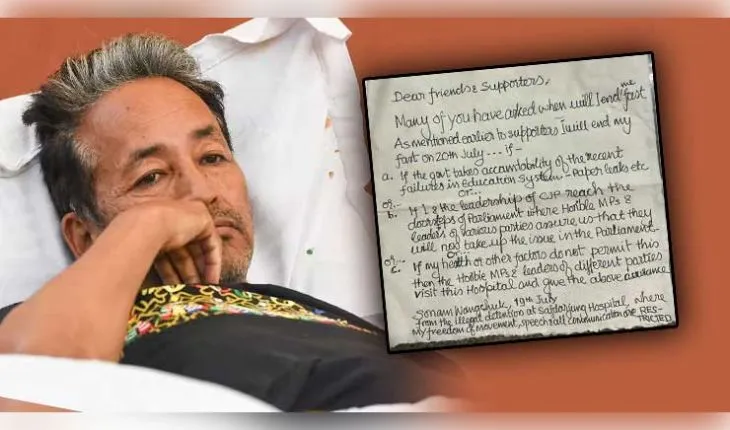 Dear friends & Supporters,
Many of you have asked when will I end me fast
As mentioned earlier to supporters I will end my
fast on 20th July.... if -
a. If the govt takes accountability of the recent
failures in Education System - Paper leaks etc
or...
or... b. If I & the leadership of CJP reach the
doorsteps of Parliament where Honble MPs &
leaders of various parties assure us that they
will now take up the issue in the Parliament.
or...
or... c. If my health or other factors do not permit this
then the Honble MPs & leaders of different parties
visit this Hospital and give the above assurance
Sonam Wangchuk, 19th July
From the illegal detention at Safdarjung Hospital, where
my freedom of movement, speech all communication are RES-
TRICTED